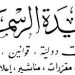 يدة الرسمـ
ت دولية ، قوانين ،
مقررات ، مناشير ، إعلا